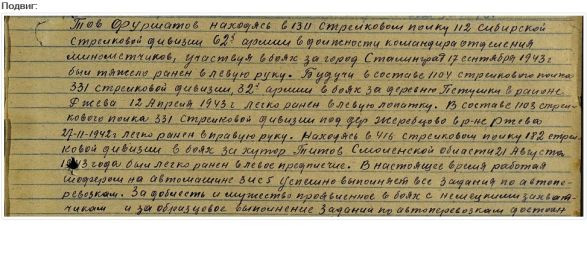 Подвиг:
Тов Фурштатов находясь в 1311 стрелковом полку 112 сибирской
стрелковой дивизии 62й армии в должности командира отделения
минометчиков, участвуя в боях за город Сталинград 17 сентября 1943г
был тяжело ранен в левую руку. Будучи в составе 1104 стрелкового полка
331 стрелковой дивизии, 32й армии в боях за деревню Петушки в районе
Ржева 12 Апреля 1943г легко ранен в левую лопатку. В составе 1103 стрел-
кового полка 331 стрелковой дивизии под дер Жеребцово в р-не Ржева
27-11-1942г легко ранен в правую руку. Находясь в 416 стрелковом полку 182 стрел-
ковой дивизии в боях за хутор Титов Смоленской области 21 Августа
1943 года был легко ранен в левое предплечие. В настоящее время работая
шофером на автомашине Зис 5 успешно выполняет все задания по автопе-
ревозкам. За доблесть и мужество проявленное в боях с немецкими захват-
чикам и за образцовое выполнение заданий по автоперевозкам достоин